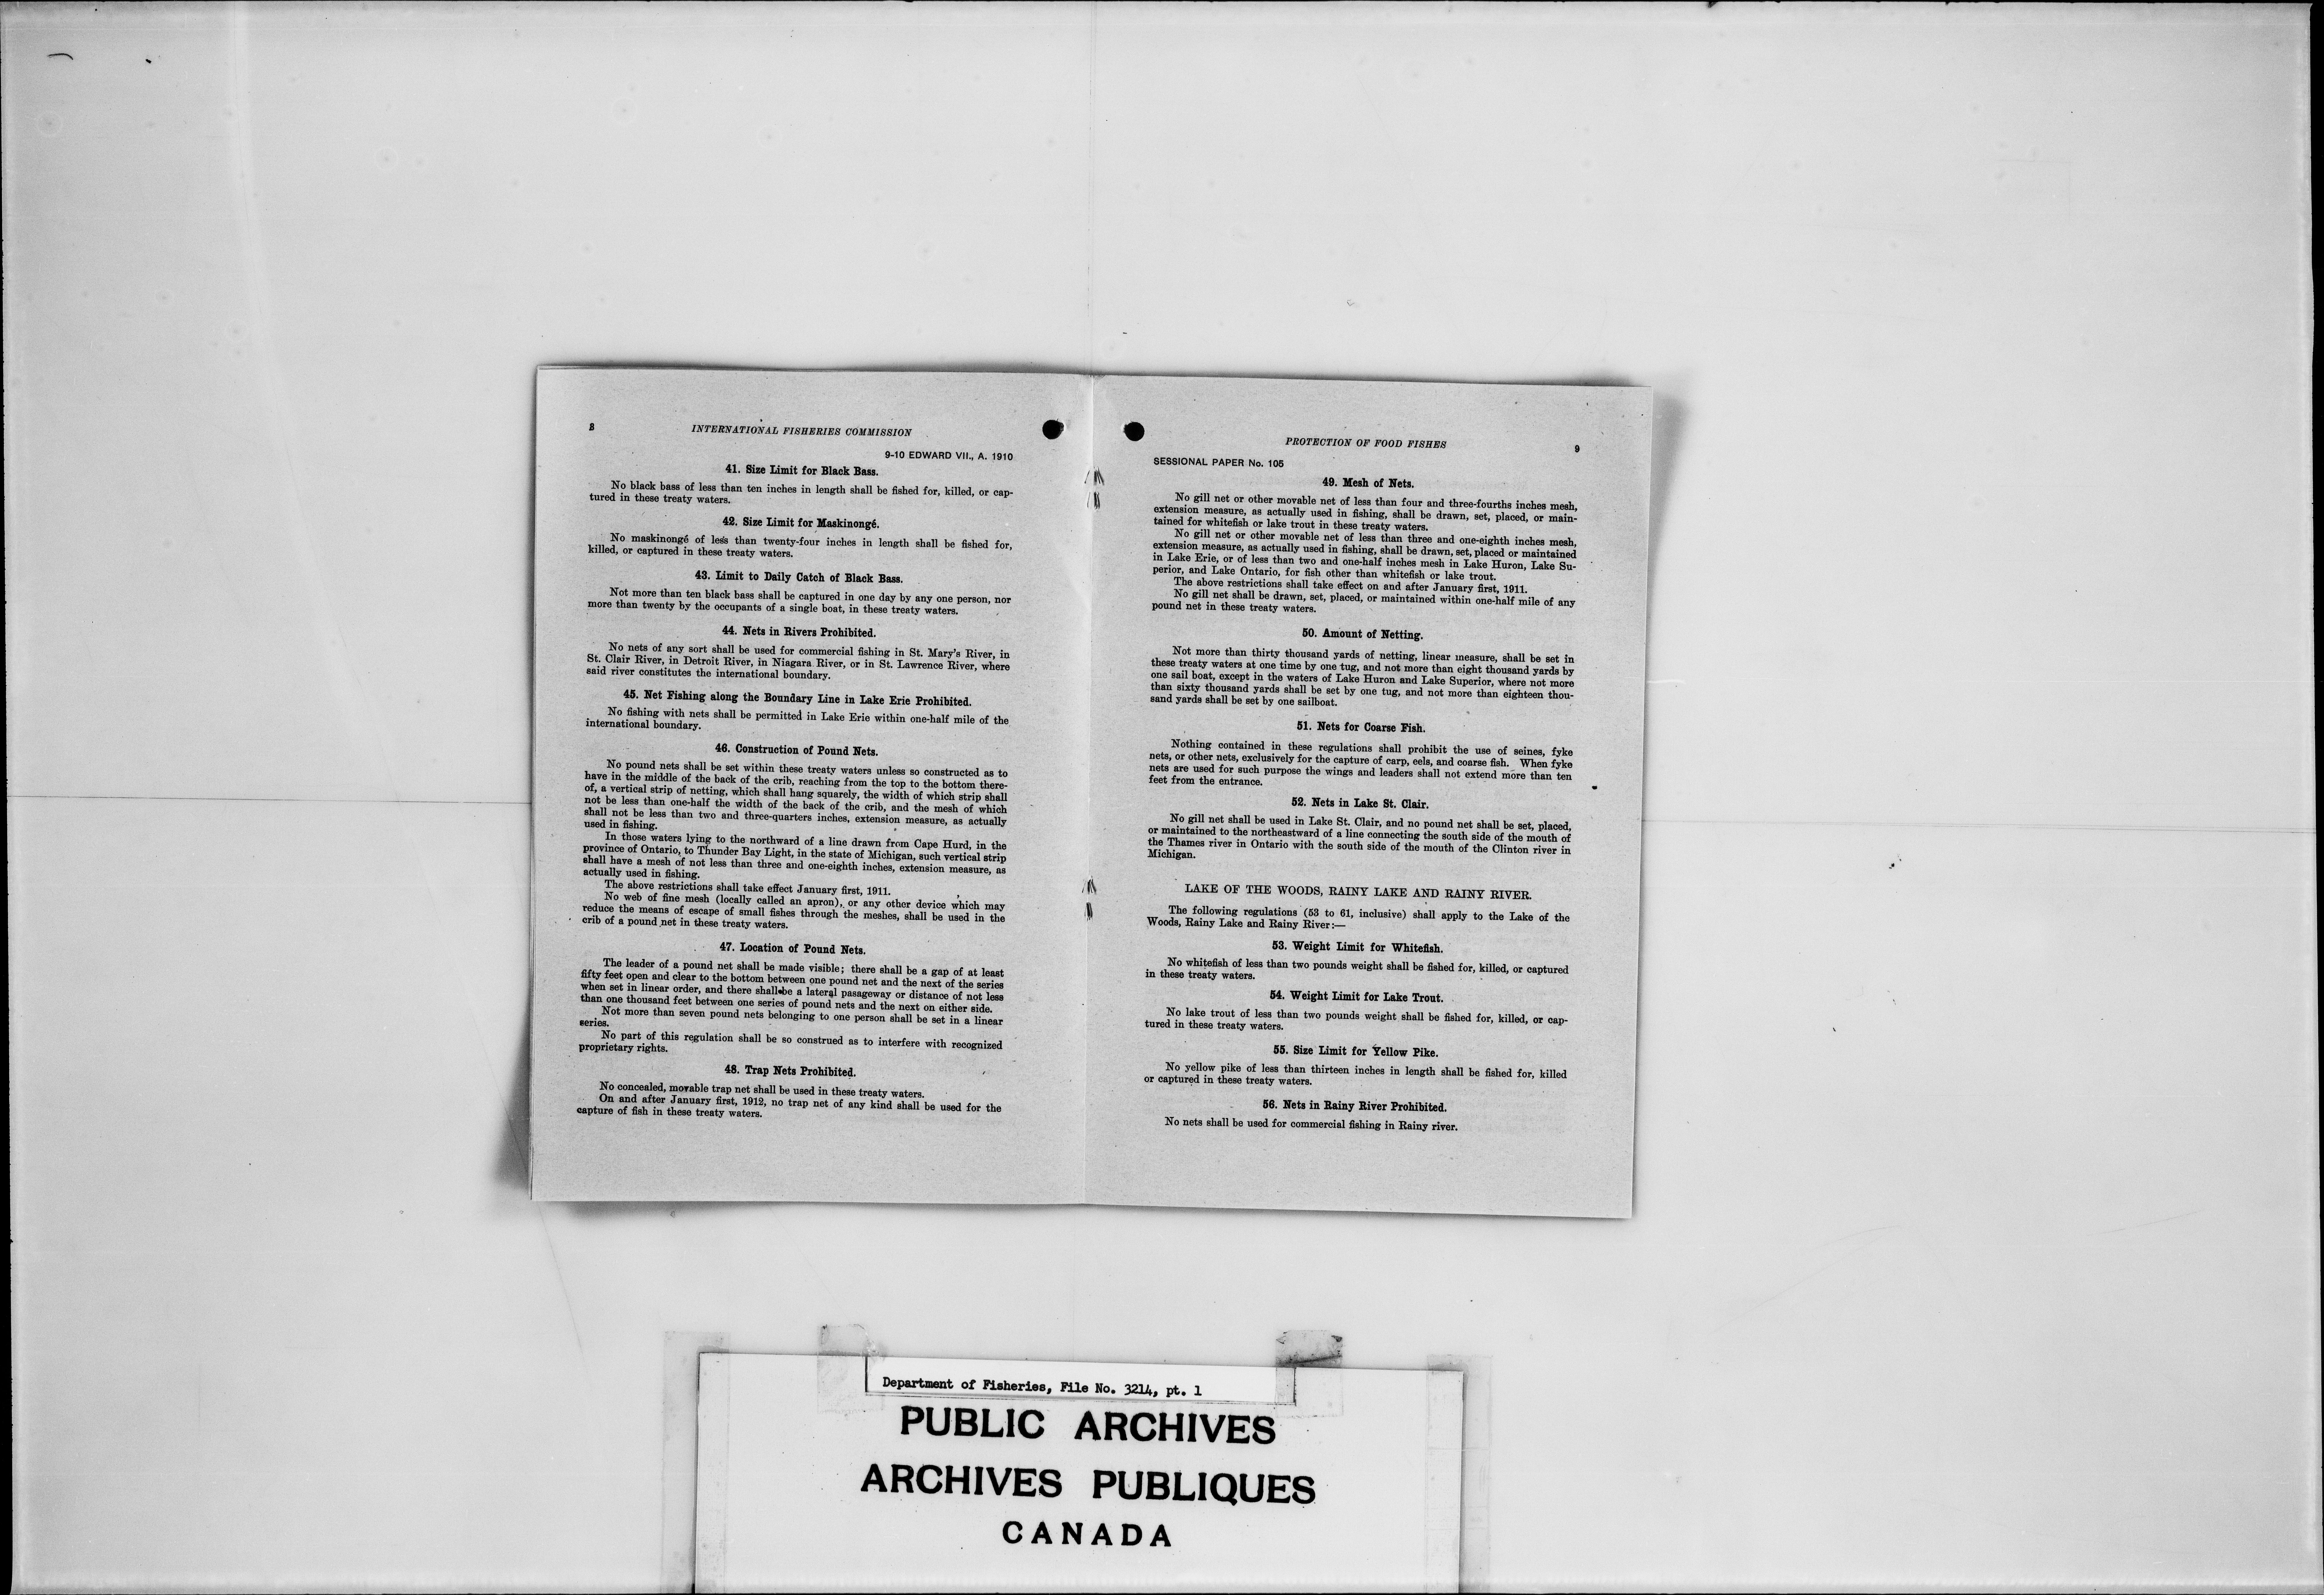 8
INTERNATIONAL FISHERIES COMMISSION
9-10 EDWARD VII., A. 1910
41. Size Limit for Black Bass.
No black bass of less than ten inches in length shall be fished for, killed, or cap-
tured in these treaty waters.
42. Size Limit for Maskinongé.
No maskinongé of less than twenty-four inches in length shall be fished for,
killed, or captured in these treaty waters.
43. Limit to Daily Catch of Black Bass.
Not more than ten black bass shall be captured in one day by any one person, nor
more than twenty by the occupants of a single boat, in these treaty waters.
44. Nets in Rivers Prohibited.
No nets of any sort shall be used for commercial fishing in St. Mary's River, in
St. Clair River, in Detroit River, in Niagara River, or in St. Lawrence River, where
said river constitutes the international boundary.
45. Net Fishing along the Boundary Line in Lake Erie Prohibited.
No fishing with nets shall be permitted in Lake Erie within one-half mile of the
international boundary.
46. Construction of Pound Nets.
No pound nets shall be set within these treaty waters unless so constructed as to
have in the middle of the back of the crib, reaching from the top to the bottom there-
of, a vertical strip of netting, which shall hang squarely, the width of which strip shall
not be less than one-half the width of the back of the crib, and the mesh of which
shall not be less than two and three-quarters inches, extension measure, as actually
used in fishing.
In those waters lying to the northward of a line drawn from Cape Hurd, in the
province of Ontario, to Thunder Bay Light, in the state of Michigan, such vertical strip
shall have a mesh of not less than three and one-eighth inches, extension measure, as
actually used in fishing.
The above restrictions shall take effect January first, 1911.
No web of fine mesh (locally called an apron), or any other device which may
reduce the means of escape of small fishes through the meshes, shall be used in the
crib of a pound net in these treaty waters.
47. Location of Pound Nets.
The leader of a pound net shall be made visible; there shall be a gap of at least
fifty feet open and clear to the bottom between one pound net and the next of the series
when set in linear order, and there shall be a lateral pasageway or distance of not less
than one thousand feet between one series of pound nets and the next on either side.
Not more than seven pound nets belonging to one person shall be set in a linear
series.
No part of this regulation shall be so construed as to interfere with recognized
proprietary rights.
48. Trap Nets Prohibited.
No concealed, movable trap net shall be used in these treaty waters.
On and after January first, 1912, no trap net of any kind shall be used for the
capture of fish in these treaty waters.
PROTECTION OF FOOD FISHES
9
SESSIONAL PAPER No. 105
49. Mesh of Nets.
No gill net or other movable net of less than four and three-fourths inches mesh,
extension measure, as actually used in fishing, shall be drawn, set, placed, or main-
tained for whitefish or lake trout in these treaty waters.
No gill net or other movable net of less than three and one-eighth inches mesh,
extension measure, as actually used in fishing, shall be drawn, set, placed or maintained
in Lake Erie, or of less than two and one-half inches mesh in Lake Huron, Lake Su-
perior, and Lake Ontario, for fish other than whitefish or lake trout.
The above restrictions shall take effect on and after January first, 1911.
No gill net shall be drawn, set, placed, or maintained within one-half mile of any
pound net in these treaty waters.
50. Amount of Netting.
Not more than thirty thousand yards of netting, linear measure, shall be set in
these treaty waters at one time by one tug, and not more than eight thousand yards by
one sail boat, except in the waters of Lake Huron and Lake Superior, where not more
than sixty thousand yards shall be set by one tug, and not more than eighteen thou-
sand yards shall be set by one sailboat.
51. Nets for Coarse Fish.
Nothing contained in these regulations shall prohibit the use of seines, fyke
nets, or other nets, exclusively for the capture of carp, eels, and coarse fish. When fyke
nets are used for such purpose the wings and leaders shall not extend more than ten
feet from the entrance.
52. Nets in Lake St. Clair.
No gill net shall be used in Lake St. Clair, and no pound net shall be set, placed,
or maintained to the northeastward of a line connecting the south side of the mouth of
the Thames river in Ontario with the south side of the mouth of the Clinton river in
Michigan.
LAKE OF THE WOODS, RAINY LAKE AND RAINY RIVER.
The following regulations (53 to 61, inclusive) shall apply to the Lake of the
Woods, Rainy Lake and Rainy River:—
53. Weight Limit for Whitefish.
No whitefish of less than two pounds weight shall be fished for, killed, or captured
in these treaty waters.
54. Weight Limit for Lake Trout.
No lake trout of less than two pounds weight shall be fished for, killed, or cap-
tured in these treaty waters.
55. Size Limit for Yellow Pike.
No yellow pike of less than thirteen inches in length shall be fished for, killed
or captured in these treaty waters.
56. Nets in Rainy River Prohibited.
No nets shall be used for commercial fishing in Rainy river.
Department of Fisheries, File No. 3214, pt. 1
PUBLIC ARCHIVES
ARCHIVES PUBLIQUES
CANADA